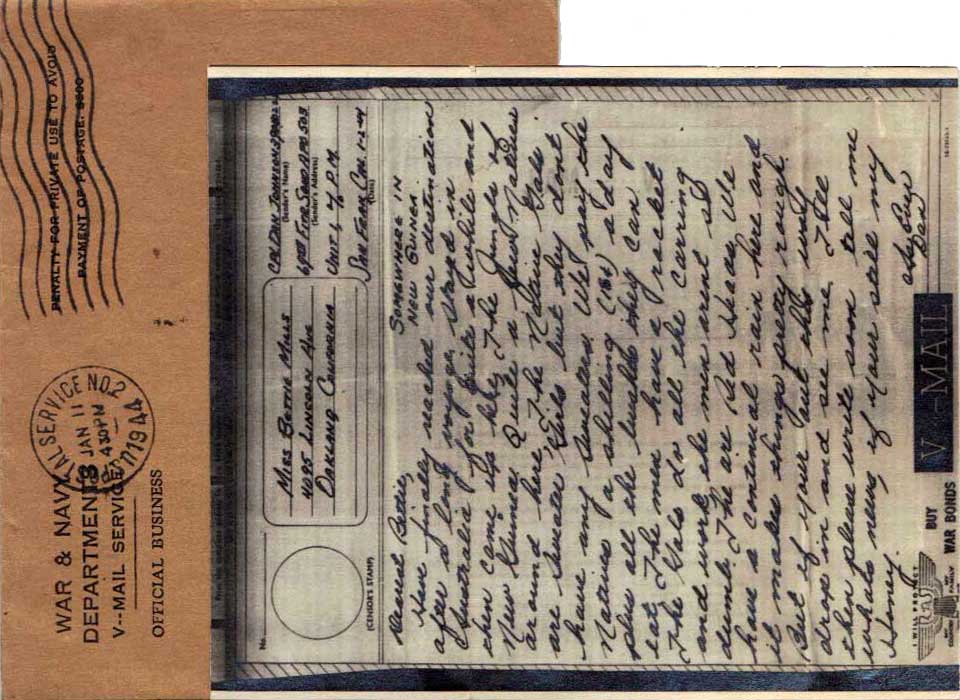 WAR & NAVY
DEPARTMENTS
V--MAIL SERVICE
OFFICIAL BUSINESS
PENALTY FOR PRIVATE USE TO AVOID
PAYMENT OF POSTAGE, $300
POSTAL SERVICE NO. 2
JAN 11
430PM
1944
No.
(CENSOR'S STAMP)
Miss Bettie Mills
4095 Lincoln Ave
Oakland California
(Sender's Name)
(Sender's Address)
Unit 1 % P.M.
San Fran. Cal. 1-2-44
(Date)
SOMEWHERE IN
NEW GUINEA
Dearest Bettie,
Have finally reached our destination
after a long voyage, stayed in
Australia for quite a while and
then came up here. The Jungle of
New Guinea. Quite a few Natives
around here. The Native Gals
are Sweater Girls but they dont
have any sweaters. We pay the
Natives a shilling (16¢) a day
plus all the they can
eat. The men have a racket
The Gals do all the carring
and work, the men arent so
dumb. The are Bad Heads. We
have a continual rain here and
it makes things pretty rough.
But if your out this way
drop in and see me. I'll
then please write soon tell me
whats news if your still my
Honey,
Dan
I WILL PROTECT
MY COUNTRY
MY FAMILY
BUY
WAR BONDS
V···—MAIL